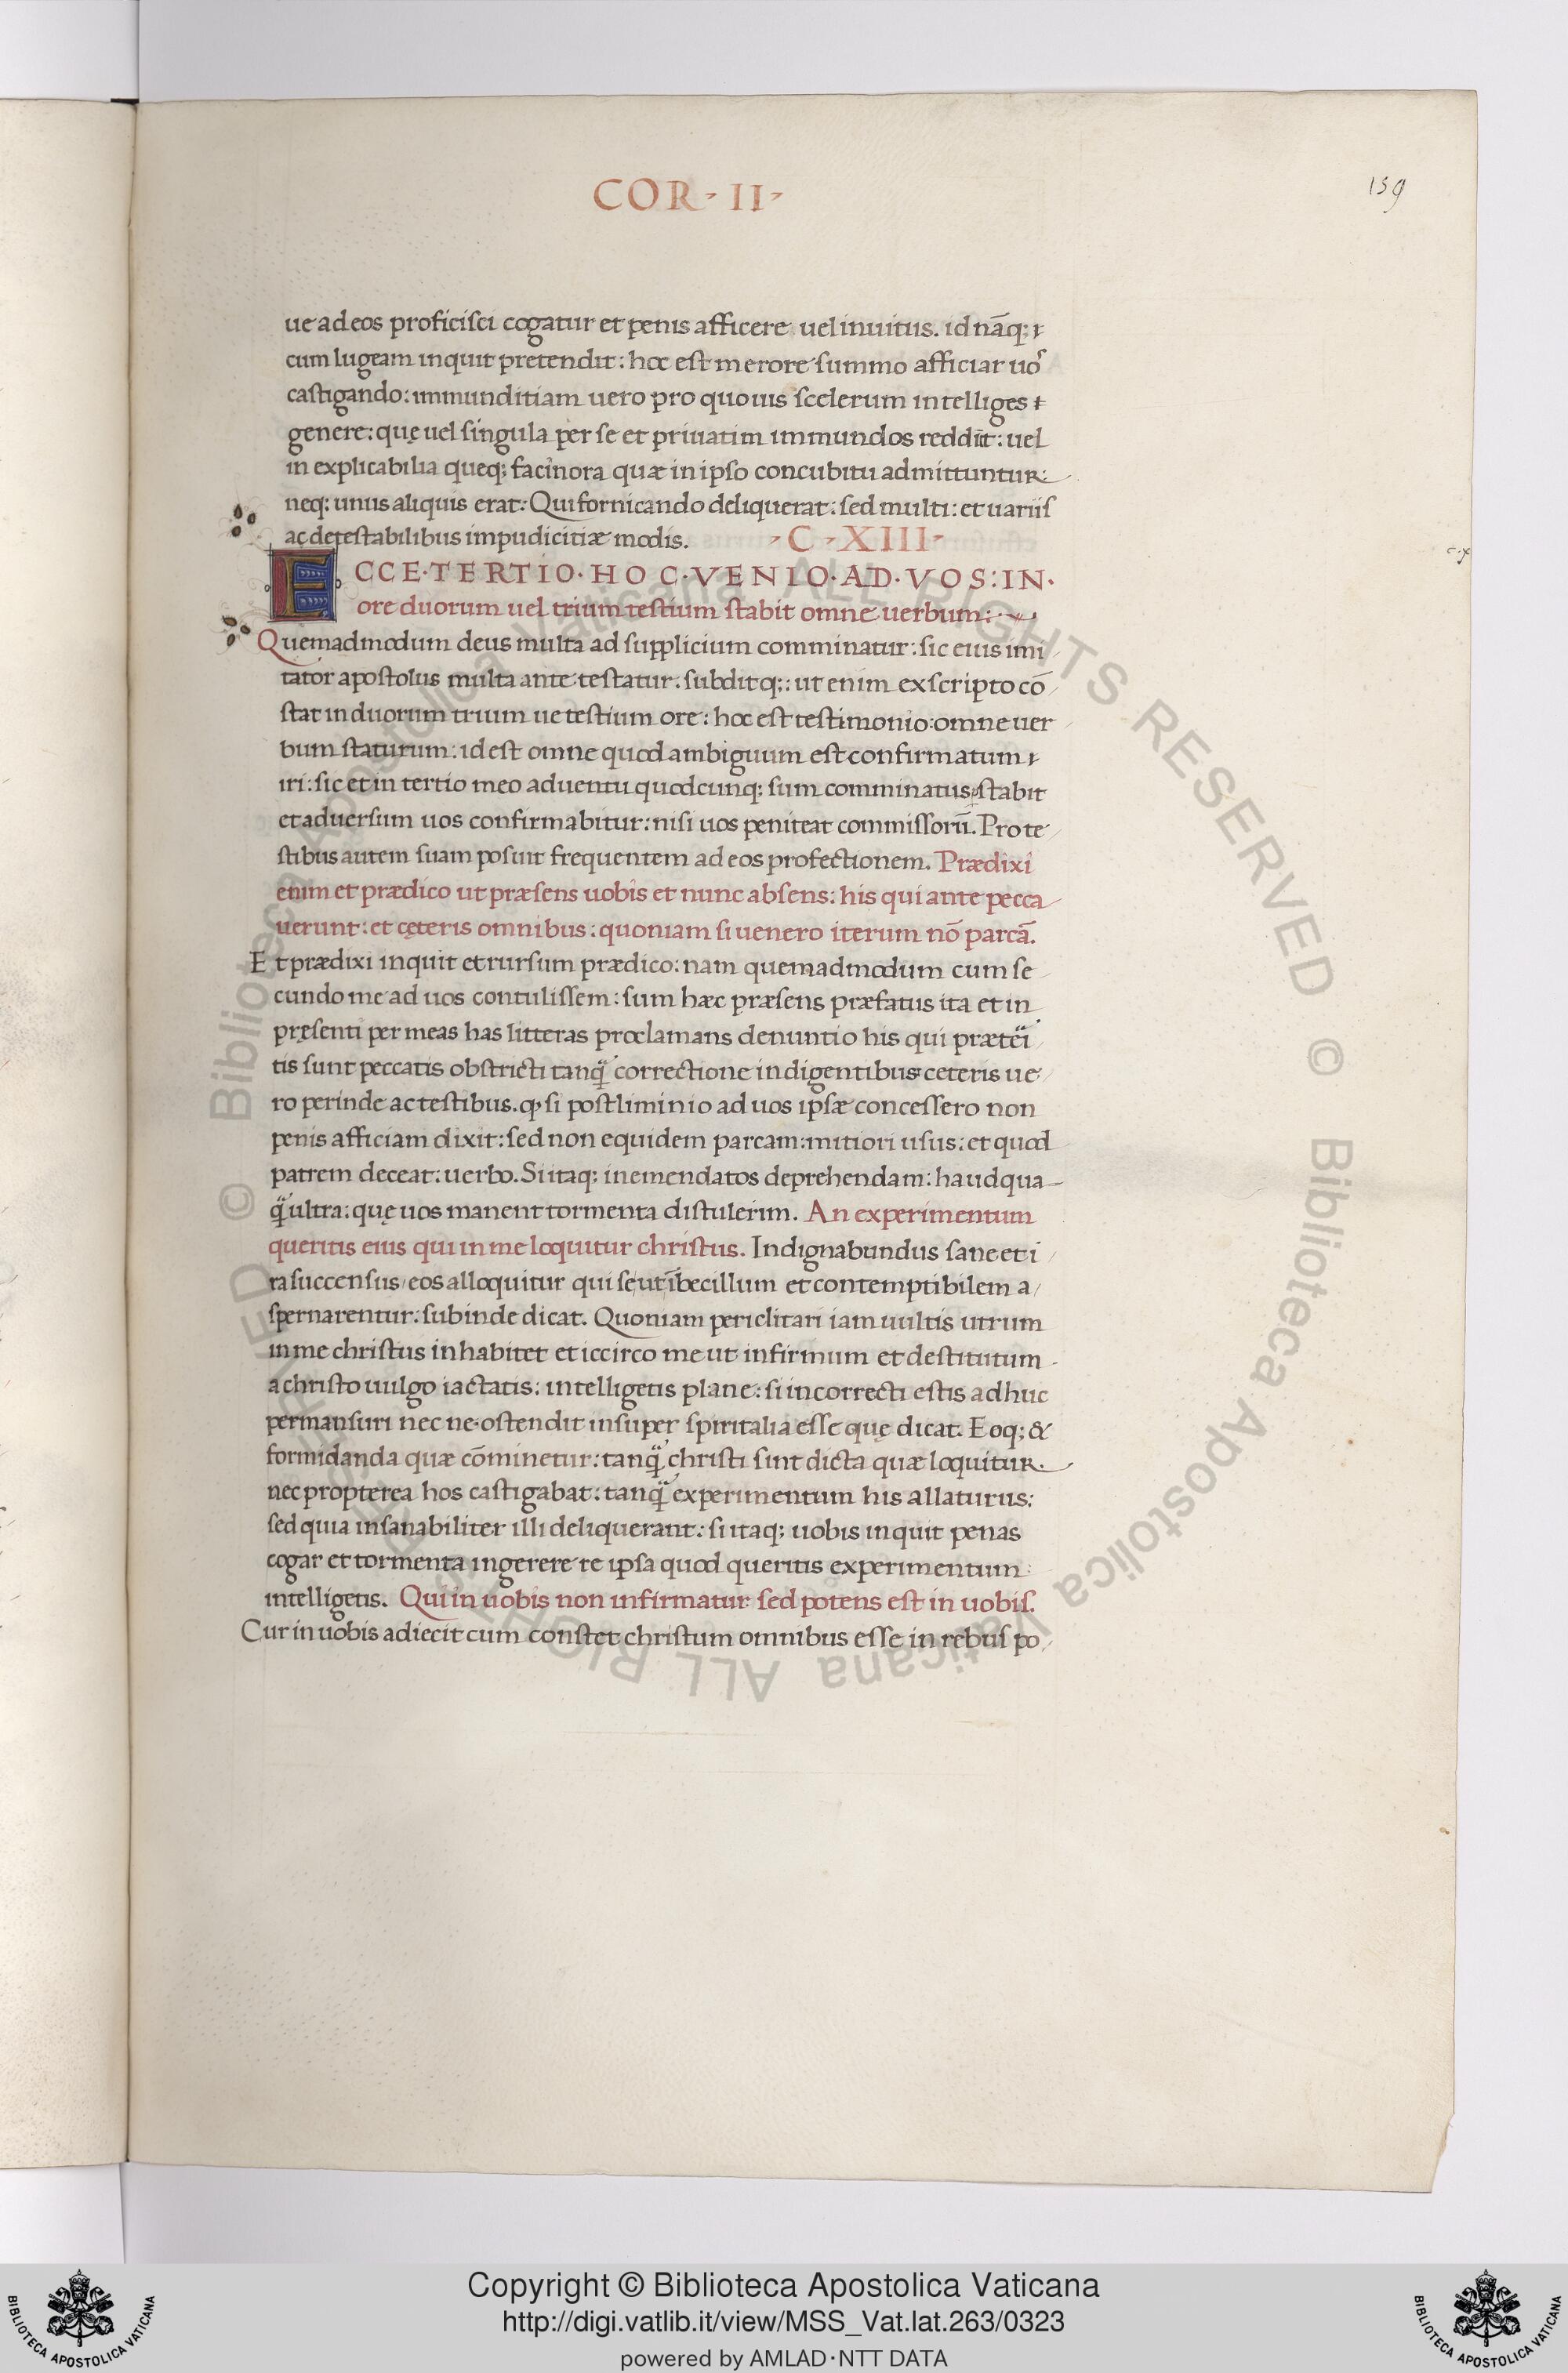 COR · II ·
159
ue ad eos proficisci cogatur et penis afficere uel inuitus. id nāq;
cum lugeam inquit pretendit: hoc est merore summo afficiar uoˢ
castigando: immunditiam uero pro quouis scelerum intelliges
genere: quę uel singula per se et priuatim immundos reddūt: uel
in explicabilia queq; facinora quæ in ipso concubitu admittuntur:
neq; unus aliquis erat: Qui fornicando deliquerat: sed multi: et uariis
ac detestabilibus impudicitiæ modis. · C · XIII ·
ECCE · TERTIO · HOC · VENIO · AD · VOS : IN ·
ore duorum uel trium testium stabit omne uerbum:
Quemadmodum deus multa ad supplicium comminatur: sic eius imi
tator apostolus multa ante testatur: subditq;: ut enim ex scripto cō
stat in duorum trium ue testium ore: hoc est testimonio: omne uer
bum staturum: id est omne quod ambiguum est confirmatum
iri: sic et in tertio meo aduentu quodcunq; sum comminatus stabit
et aduersum uos confirmabitur: nisi uos peniteat commissorū. Pro te
stibus autem suam posuit frequentem ad eos profectionem. Prædixi
enim et prædico ut præsens uobis et nunc absens: his qui ante pecca
uerunt: et cęteris omnibus: quoniam si uenero iterum nō parcā.
Et prædixi inquit et rursum prædico: nam quemadmodum cum se
cundo me ad uos contulissem: sum hæc præsens præfatus ita et in
pręsenti per meas has litteras proclamans denuntio his qui præteri
tis sunt peccatis obstricti tanq̃ correctione indigentibus ceteris ue
ro perinde ac testibus. ꝙ si postliminio ad uos ipsæ concessero non
penis afficiam dixit: sed non equidem parcam: mitiori usus: et quod
patrem deceat: uerbo. Si itaq; inemendatos deprehendam: haud qua
q̃ ultra: quę uos manent tormenta distulerim. An experimentum
queritis eius qui in me loquitur christus. Indignabundus sane et i
ra succensus eos alloquitur qui se ut ībecillum et contemptibilem a
spernarentur: subinde dicat. Quoniam periclitari iam uultis utrum
in me christus inhabitet et iccirco me ut infirmum et destitutum
a christo uulgo iactatis: intelligetis plane: si incorrecti estis adhuc
permansuri nec ne. ostendit insuper spiritalia esse quę dicat. Eoq; &
formidanda quæ cōminetur: tanq̃ christi sint dicta quæ loquitur.
nec propterea hos castigabat: tanq̃ experimentum his allaturus:
sed quia insanabiliter illi deliquerant: si itaq; uobis inquit penas
cogar et tormenta ingerere re ipsa quod queritis experimentum
intelligetis. Qui in uobis non infirmatur sed potens est in uobis.
Cur in uobis adiecit cum constet christum omnibus esse in rebus po
© Biblioteca Apostolica Vaticana ALL RIGHTS RESERVED
© Biblioteca Apostolica Vaticana ALL RIGHTS RESERVED
Copyright © Biblioteca Apostolica Vaticana
http://digi.vatlib.it/view/MSS_Vat.lat.263/0323
powered by AMLAD·NTT DATA
BIBLIOTECA APOSTOLICA VATICANA
BIBLIOTECA APOSTOLICA VATICANA